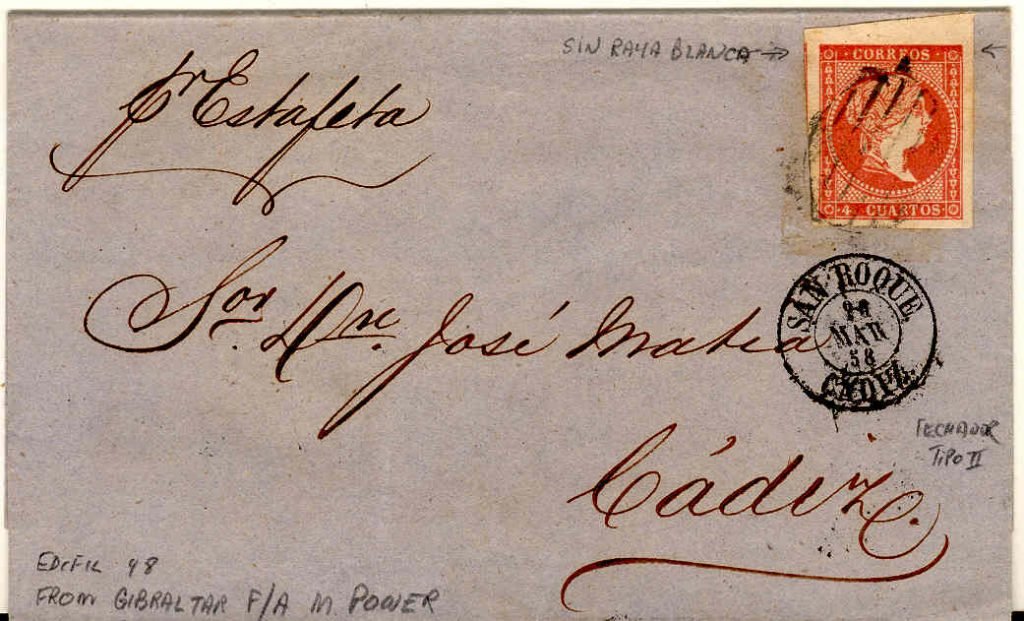 SIN RAYA BLANCA
CORREOS
4 CUARTOS
pr Estafeta
SAN ROQUE
MAR
58
CADIZ
Sor. Dn. José Matia
FECHADOR
TIPO II
Cádiz.
EDIFIL 48
FROM GIBRALTAR F/A M. POWER